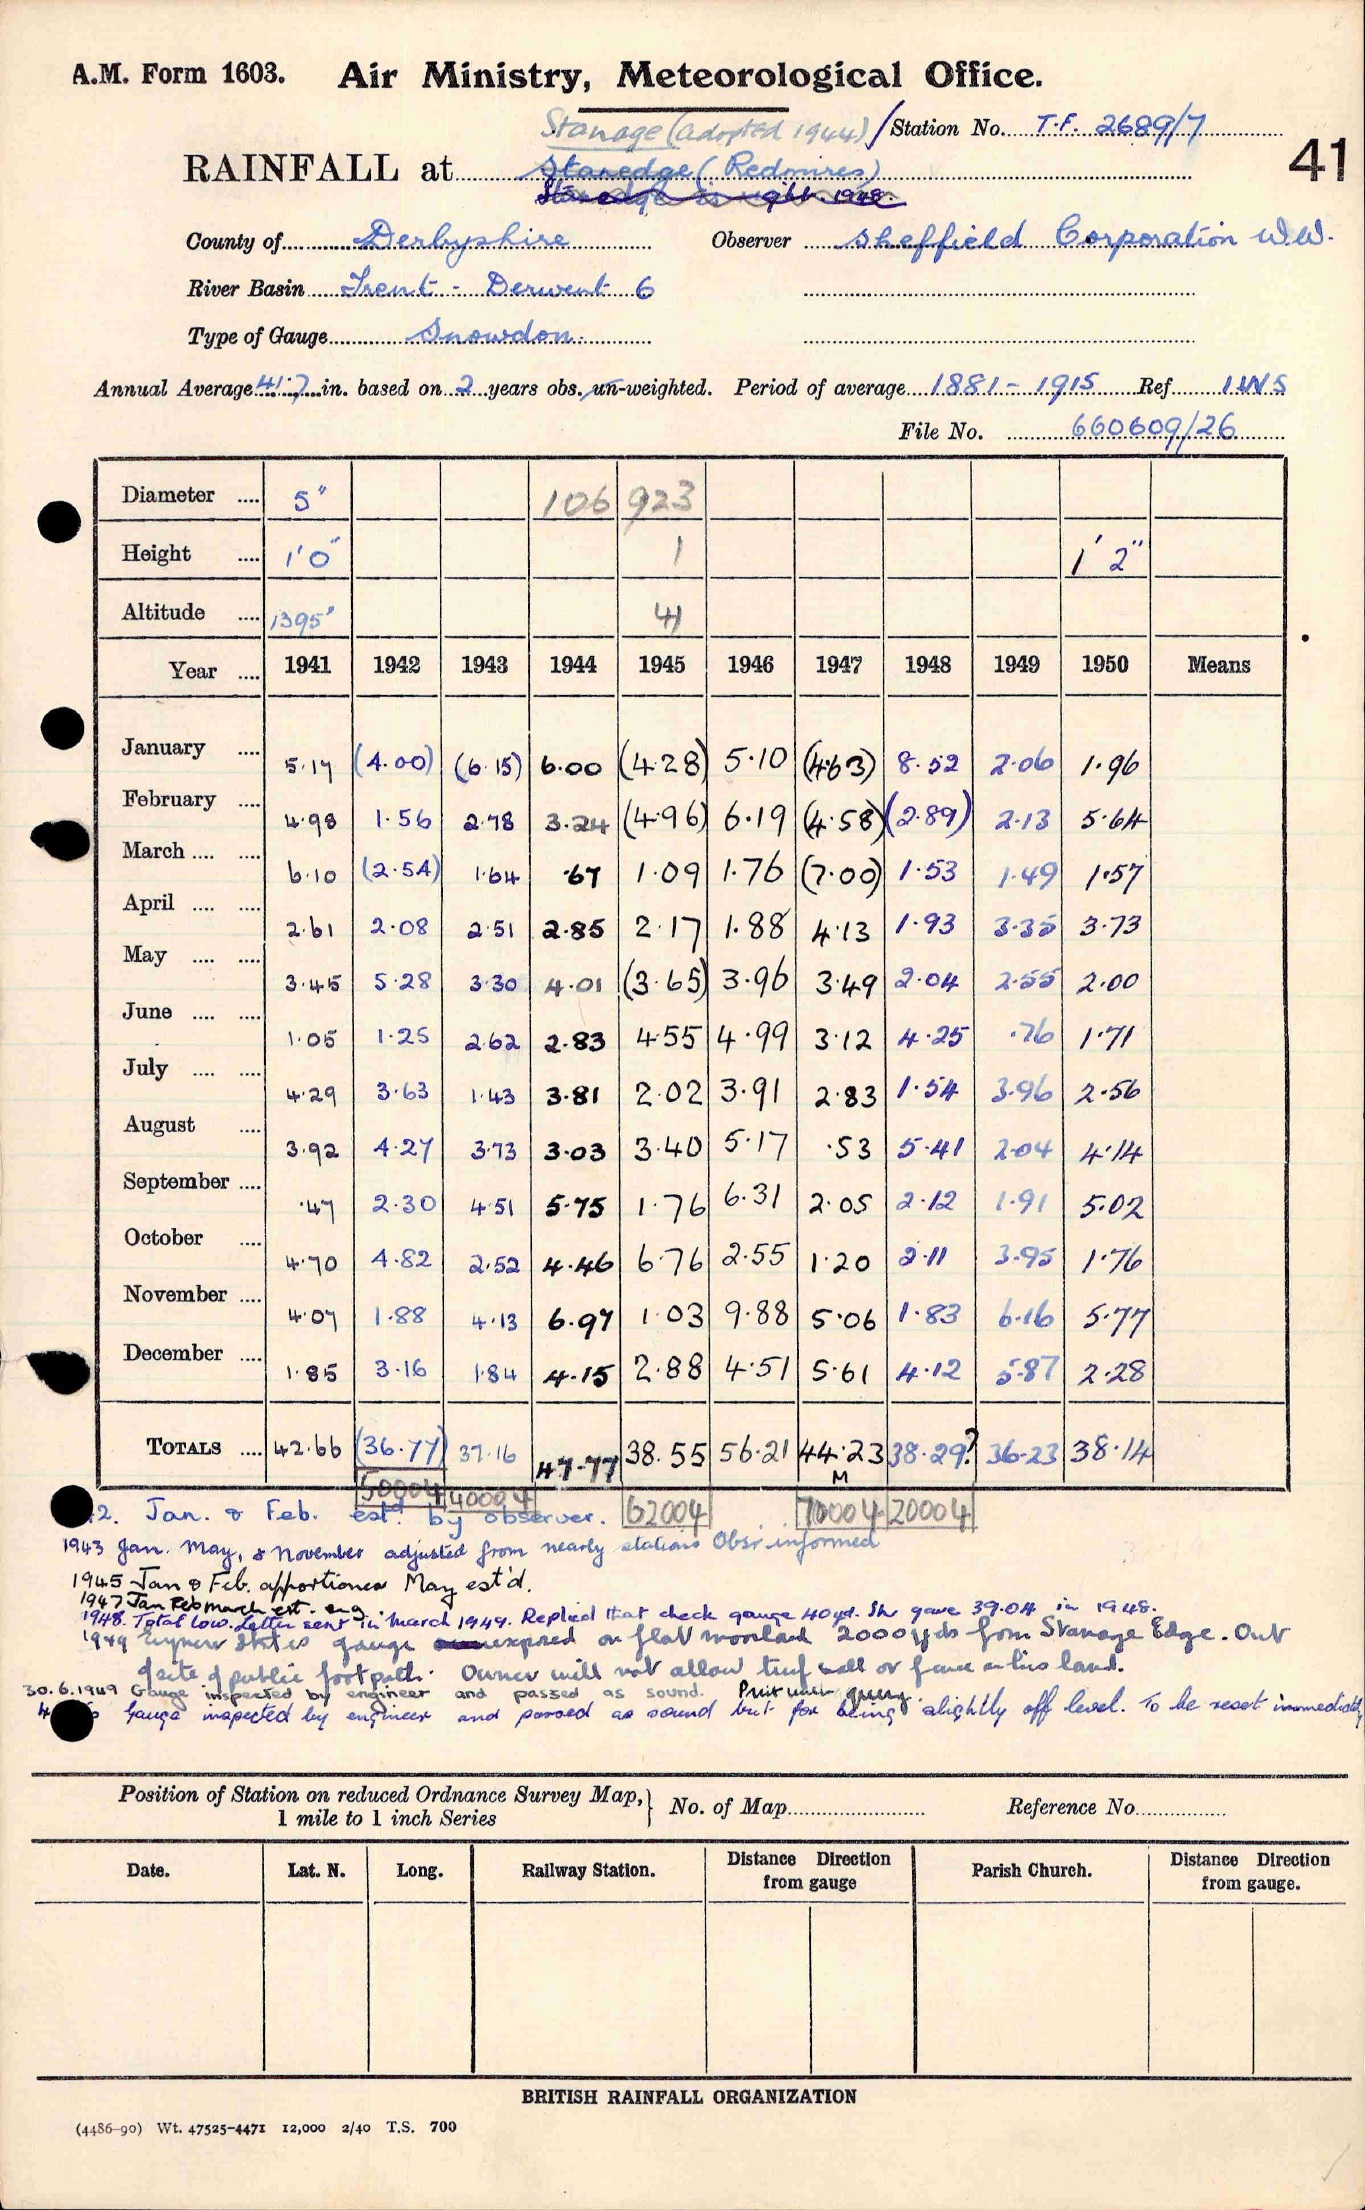 A.M. Form 1603. Air Ministry, Meteorological Office.
Stanage (adopted 1944) / Station No. T.F. 2689/7
41
RAINFALL at Stanedge (Redmires)
County of Derbyshire Observer Sheffield Corporation W.W.
River Basin Trent - Derwent 6
Type of Gauge Snowdon.
Annual Average 41.7 in. based on 2 years obs. un-weighted. Period of average 1881 - 1915 Ref IWS
File No. 660609/26
Diameter .... 5" 106 923
Height .... 1'0" 1 1' 2"
Altitude .... 1395' 41
Year .... 1941 1942 1943 1944 1945 1946 1947 1948 1949 1950 Means
January .... 5.17 (4.00) (6.15) 6.00 (4.28) 5.10 (4.63) 8.52 2.06 1.96
February .... 4.98 1.56 2.78 3.24 (4.96) 6.19 (4.58) (2.89) 2.13 5.64
March .... .... 6.10 (2.54) 1.64 .67 1.09 1.76 (7.00) 1.53 1.49 1.57
April .... .... 2.61 2.08 2.51 2.85 2.17 1.88 4.13 1.93 3.35 3.73
May .... .... 3.45 5.28 3.30 4.01 (3.65) 3.96 3.49 2.04 2.55 2.00
June .... .... 1.05 1.25 2.62 2.83 4.55 4.99 3.12 4.25 .76 1.71
July .... .... 4.29 3.63 1.43 3.81 2.02 3.91 2.83 1.54 3.96 2.56
August .... 3.92 4.27 3.73 3.03 3.40 5.17 .53 5.41 2.04 4.14
September .... .47 2.30 4.51 5.75 1.76 6.31 2.05 2.12 1.91 5.02
October .... 4.70 4.82 2.52 4.46 6.76 2.55 1.20 2.11 3.95 1.76
November .... 4.07 1.88 4.13 6.97 1.03 9.88 5.06 1.83 6.16 5.77
December .... 1.85 3.16 1.84 4.15 2.88 4.51 5.61 4.12 5.87 2.28
TOTALS .... 42.66 (36.77) 37.16 47.77 38.55 56.21 44.23 38.29? 36.23 38.14
M
50004 40004 62004 70004 20004
2. Jan. & Feb. estd. by observer.
1943 Jan. May, & November adjusted from nearly stations Obsr informed
1945 Jan & Feb. apportioned May est'd.
1947 Jan Feb March est. eng.
1948. Total low. Letter sent in March 1949. Replied that check gauge 40yd. gave 39.04 in 1948.
1949 states gauge exposed on flat moorland 2000 yds from Stanage Edge. Out
of site of public footpath. Owner will not allow turf wall or fence on his land.
30.6.1949 Gauge inspected by engineer and passed as sound. query.
Gauge inspected by engineer and passed as sound but for being slightly off level. To be reset immediately
Position of Station on reduced Ordnance Survey Map, 1 mile to 1 inch Series } No. of Map Reference No.
Date. Lat. N. Long. Railway Station. Distance Direction from gauge Parish Church. Distance Direction from gauge.
BRITISH RAINFALL ORGANIZATION
(4486-90) Wt. 47525-4471 12,000 2/40 T.S. 700